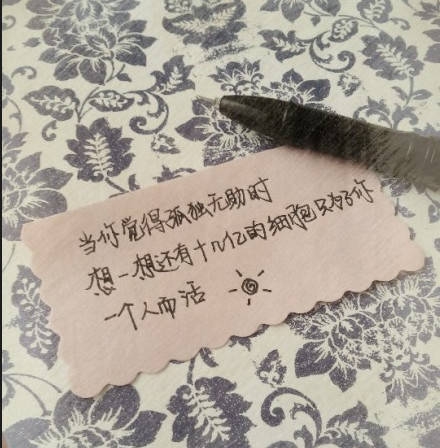 当你觉得孤独无助时
想一想还有十几亿的细胞只为了你
一个人而活